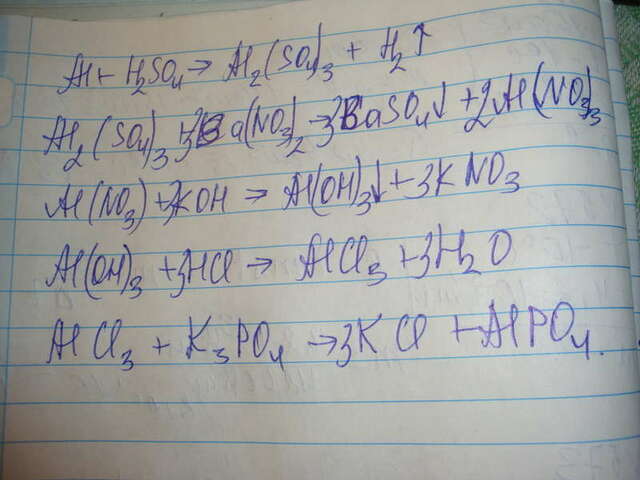 Al + H₂SO₄ → Al₂(SO₄)₃ + H₂↑
Al₂(SO₄)₃ + 3Ba(NO₃)₂ → 3BaSO₄↓ + 2Al(NO₃)₃
Al(NO₃) + 3KOH → Al(OH)₃↓ + 3KNO₃
Al(OH)₃ + 3HCl → AlCl₃ + 3H₂O
AlCl₃ + K₃PO₄ → 3KCl + AlPO₄.